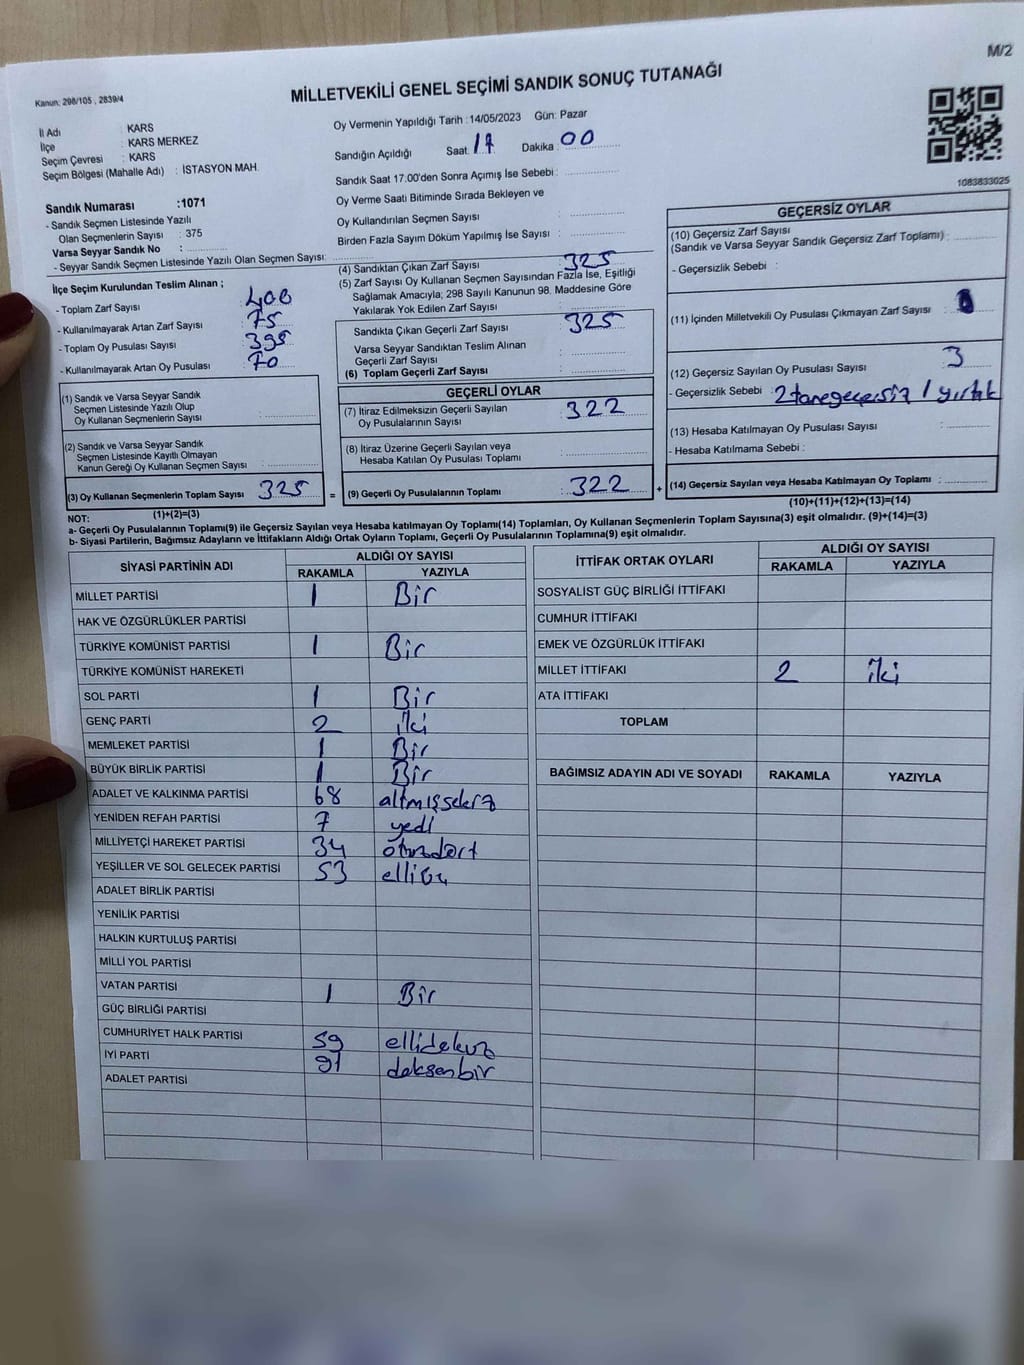 M/2
Kanun: 298/105 , 2839/4
MİLLETVEKİLİ GENEL SEÇİMİ SANDIK SONUÇ TUTANAĞI
İl Adı : KARS
İlçe : KARS MERKEZ
Seçim Çevresi : KARS
Seçim Bölgesi (Mahalle Adı) : İSTASYON MAH.
Oy Vermenin Yapıldığı Tarih :14/05/2023 Gün: Pazar
Sandığın Açıldığı Saat: 17 Dakika: 00
Sandık Saat 17:00'den Sonra Açımış İse Sebebi :
Oy Verme Saati Bitiminde Sırada Bekleyen ve
Oy Kullandırılan Seçmen Sayısı :
Birden Fazla Sayım Döküm Yapılmış İse Sayısı :
1083833025
Sandık Numarası :1071
- Sandık Seçmen Listesinde Yazılı
Olan Seçmenlerin Sayısı : 375
Varsa Seyyar Sandık No :
- Seyyar Sandık Seçmen Listesinde Yazılı Olan Seçmen Sayısı:
İlçe Seçim Kurulundan Teslim Alınan ;
- Toplam Zarf Sayısı : 400
- Kullanılmayarak Artan Zarf Sayısı : 75
- Toplam Oy Pusulası Sayısı : 395
- Kullanılmayarak Artan Oy Pusulası : 70
(1) Sandık ve Varsa Seyyar Sandık
Seçmen Listesinde Yazılı Olup
Oy Kullanan Seçmenlerin Sayısı :
(2) Sandık ve Varsa Seyyar Sandık
Seçmen Listesinde Kayıtlı Olmayan
Kanun Gereği Oy Kullanan Seçmen Sayısı :
(3) Oy Kullanan Seçmenlerin Toplam Sayısı : 325 =
(1)+(2)=(3)
(4) Sandıktan Çıkan Zarf Sayısı : 325
(5) Zarf Sayısı Oy Kullanan Seçmen Sayısından Fazla İse, Eşitliği
Sağlamak Amacıyla; 298 Sayılı Kanunun 98. Maddesine Göre
Yakılarak Yok Edilen Zarf Sayısı :
Sandıkta Çıkan Geçerli Zarf Sayısı : 325
Varsa Seyyar Sandıktan Teslim Alınan
Geçerli Zarf Sayısı :
(6) Toplam Geçerli Zarf Sayısı :
GEÇERLİ OYLAR
(7) İtiraz Edilmeksizin Geçerli Sayılan
Oy Pusulalarının Sayısı : 322
(8) İtiraz Üzerine Geçerli Sayılan veya
Hesaba Katılan Oy Pusulası Toplamı :
(9) Geçerli Oy Pusulalarının Toplamı : 322 +
GEÇERSİZ OYLAR
(10) Geçersiz Zarf Sayısı
(Sandık ve Varsa Seyyar Sandık Geçersiz Zarf Toplamı) :
- Geçersizlik Sebebi :
(11) İçinden Milletvekili Oy Pusulası Çıkmayan Zarf Sayısı :
(12) Geçersiz Sayılan Oy Pusulası Sayısı : 3
- Geçersizlik Sebebi : 2 tane geçersiz 1 yırtık
(13) Hesaba Katılmayan Oy Pusulası Sayısı :
- Hesaba Katılmama Sebebi :
(14) Geçersiz Sayılan veya Hesaba Katılmayan Oy Toplamı :
(10)+(11)+(12)+(13)=(14)
NOT:
a- Geçerli Oy Pusulalarının Toplamı(9) ile Geçersiz Sayılan veya Hesaba katılmayan Oy Toplamı(14) Toplamları, Oy Kullanan Seçmenlerin Toplam Sayısına(3) eşit olmalıdır. (9)+(14)=(3)
b- Siyasi Partilerin, Bağımsız Adayların ve İttifakların Aldığı Ortak Oyların Toplamı, Geçerli Oy Pusulalarının Toplamına(9) eşit olmalıdır.
SİYASİ PARTİNİN ADI ALDIĞI OY SAYISI
RAKAMLA YAZIYLA
MİLLET PARTİSİ 1 Bir
HAK VE ÖZGÜRLÜKLER PARTİSİ
TÜRKİYE KOMÜNİST PARTİSİ 1 Bir
TÜRKİYE KOMÜNİST HAREKETİ
SOL PARTİ 1 Bir
GENÇ PARTİ 2 iki
MEMLEKET PARTİSİ 1 Bir
BÜYÜK BİRLİK PARTİSİ 1 Bir
ADALET VE KALKINMA PARTİSİ 68 altmışsekiz
YENİDEN REFAH PARTİSİ 7 yedi
MİLLİYETÇİ HAREKET PARTİSİ 34 otuzdört
YEŞİLLER VE SOL GELECEK PARTİSİ 53 elliüç
ADALET BİRLİK PARTİSİ
YENİLİK PARTİSİ
HALKIN KURTULUŞ PARTİSİ
MİLLİ YOL PARTİSİ
VATAN PARTİSİ 1 Bir
GÜÇ BİRLİĞİ PARTİSİ
CUMHURİYET HALK PARTİSİ 59 ellidokuz
İYİ PARTİ 91 doksanbir
ADALET PARTİSİ
İTTİFAK ORTAK OYLARI ALDIĞI OY SAYISI
RAKAMLA YAZIYLA
SOSYALİST GÜÇ BİRLİĞİ İTTİFAKI
CUMHUR İTTİFAKI
EMEK VE ÖZGÜRLÜK İTTİFAKI
MİLLET İTTİFAKI 2 iki
ATA İTTİFAKI
TOPLAM
BAĞIMSIZ ADAYIN ADI VE SOYADI RAKAMLA YAZIYLA